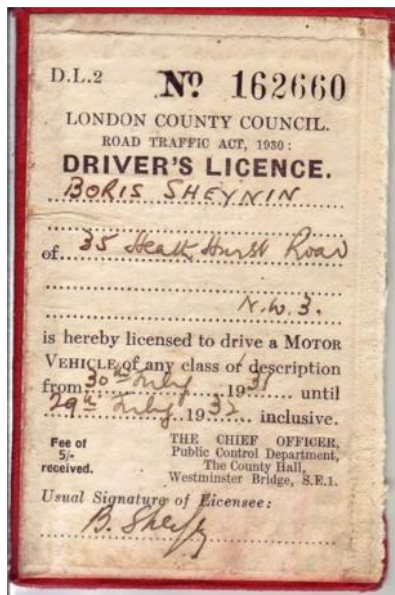 D.L.2 No 162660
LONDON COUNTY COUNCIL.
ROAD TRAFFIC ACT, 1930:
DRIVER'S LICENCE.
BORIS SHEYNIN
of 35 Heath Hurst Road
N.W.3.
is hereby licensed to drive a MOTOR
VEHICLE of any class or description
from 30th July 1931 until
29th July 1932 inclusive.
Fee of
5/-
received.
THE CHIEF OFFICER,
Public Control Department,
The County Hall,
Westminster Bridge, S.E.1.
Usual Signature of Licensee:
B.